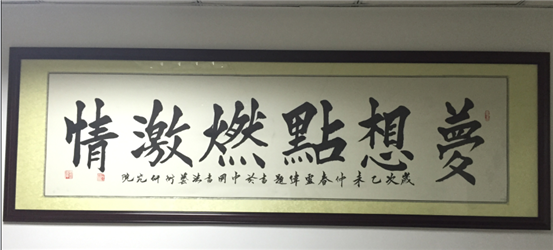 夢想點燃激情
歲次乙未仲春題書於中国書法藝術研究院